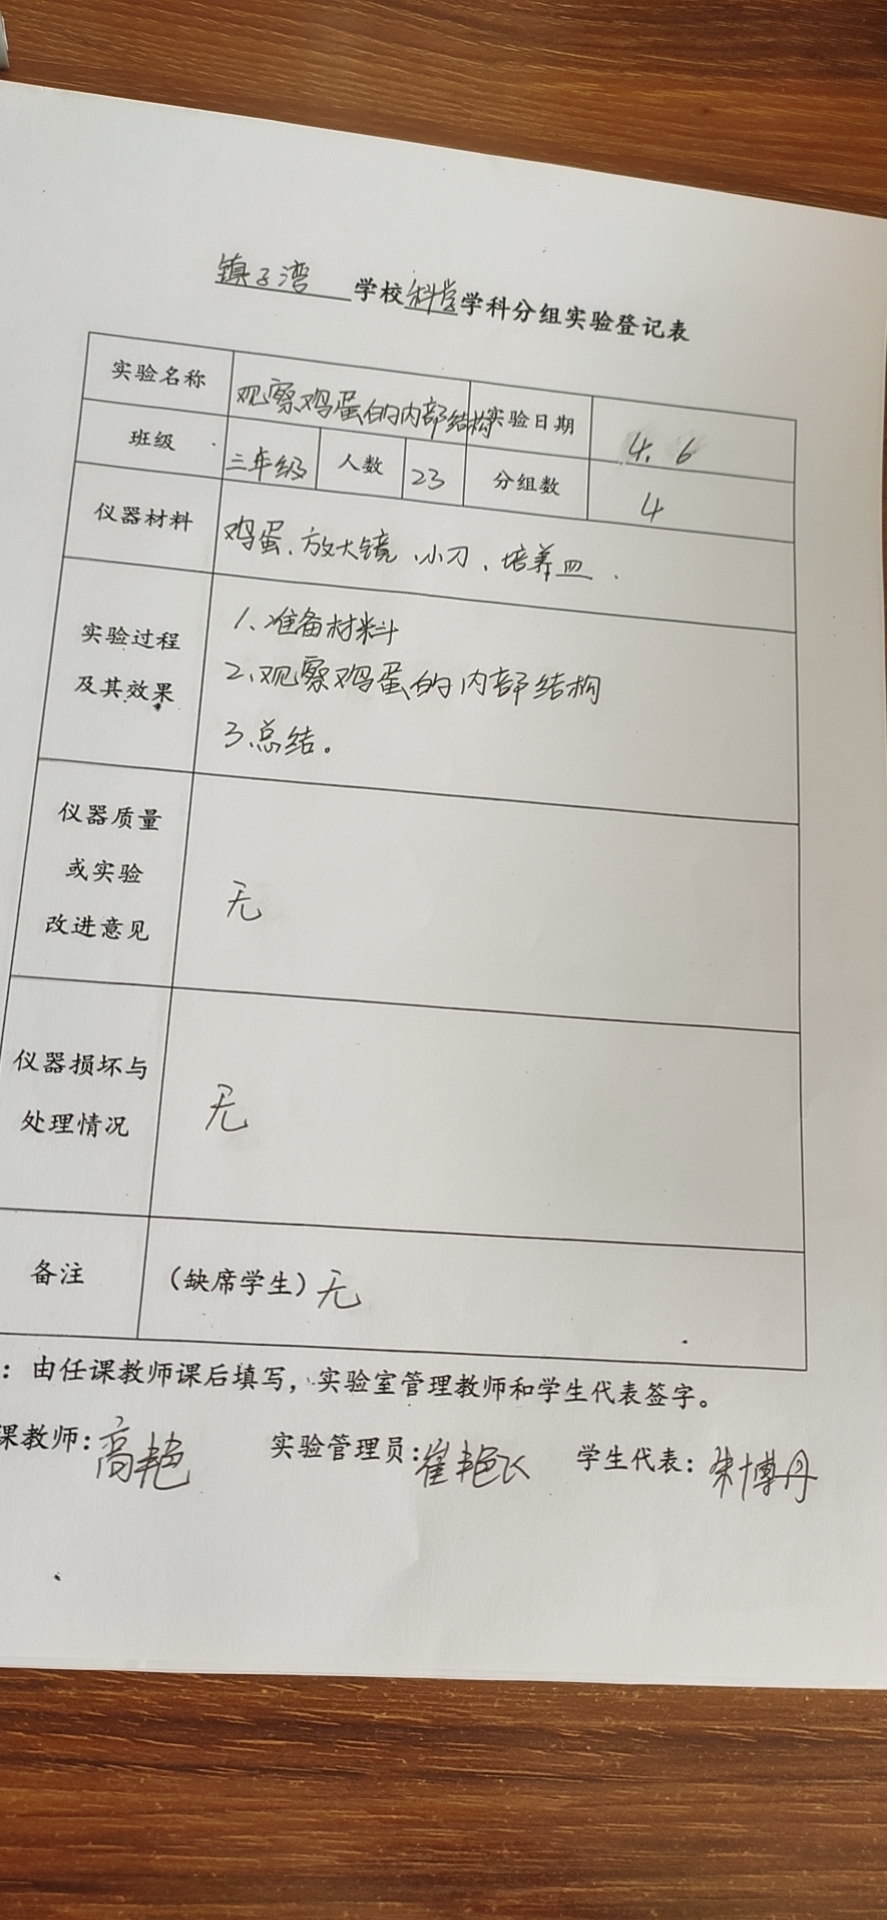 镇子湾 学校科学学科分组实验登记表
实验名称 观察鸡蛋的内部结构 实验日期 4.6
班级 三年级 人数 23 分组数 4
仪器材料 鸡蛋、放大镜、小刀、培养皿.
实验过程
及其效果
1、准备材料
2、观察鸡蛋的内部结构
3、总结。
仪器质量
或实验
改进意见
无
仪器损坏与
处理情况
无
备注 （缺席学生）无
：由任课教师课后填写，实验室管理教师和学生代表签字。
课教师：高艳 实验管理员：崔艳飞 学生代表：朱博丹